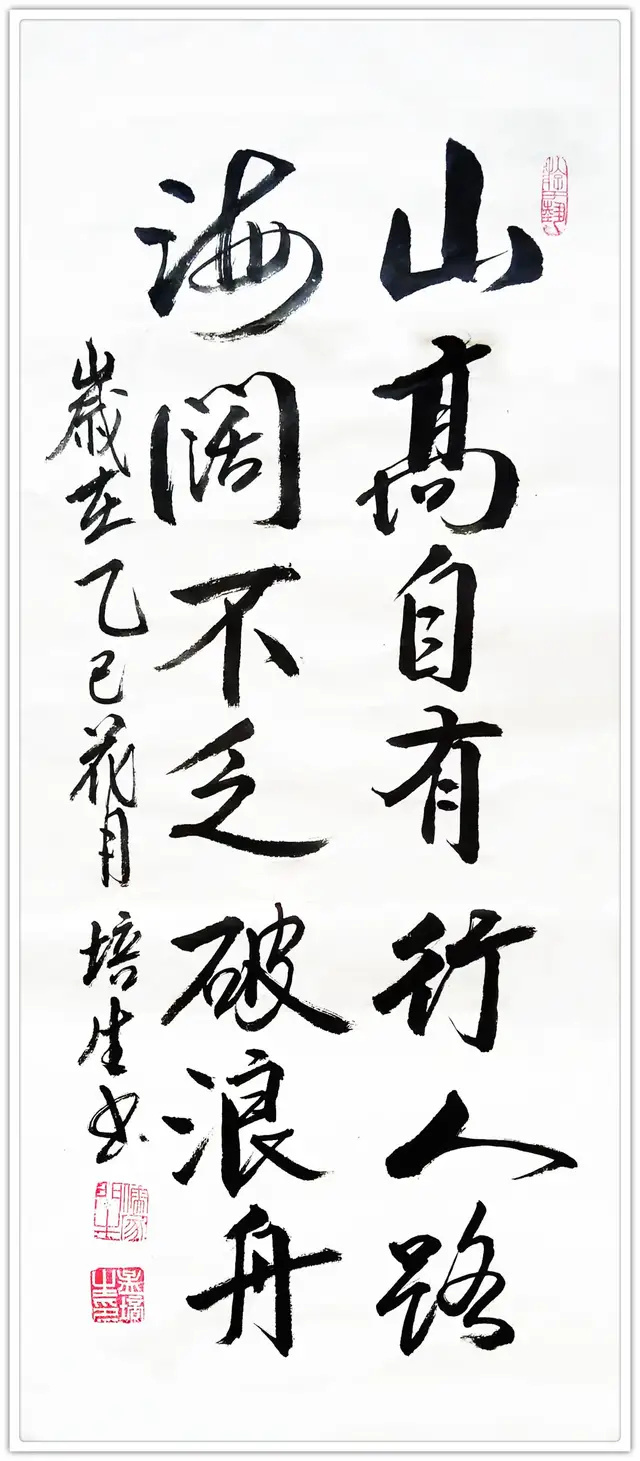 山高自有行人路
海阔不乏破浪舟
歲在乙巳花月 培生书